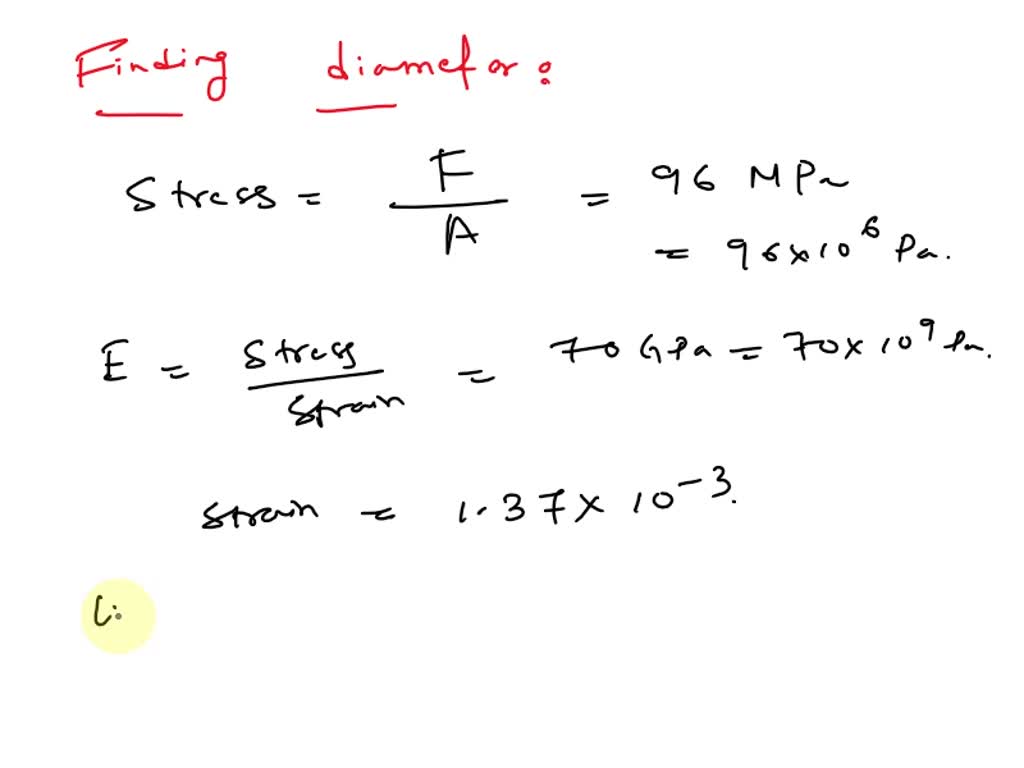 Finding diametor:
Stress = F / A = 96 MPa
= 96 × 10^6 Pa.
E = Stress / Strain = 70 GPa = 70 × 10^9 Pa.
Strain = 1.37 × 10^-3.
(i